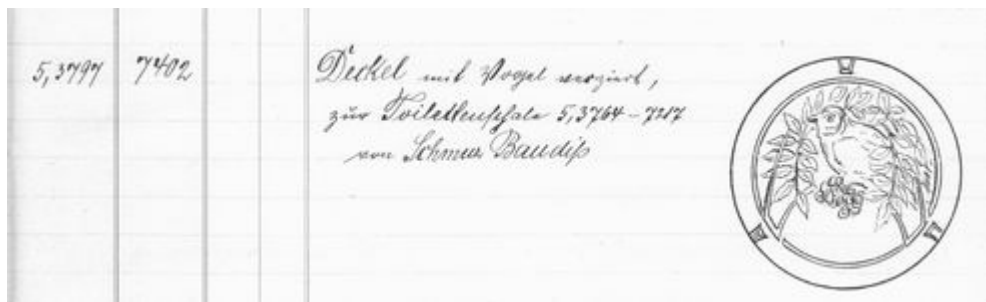 5,3797 7402 Deckel mit Vogel verziert,
zur Toilettenschale 5,3764 - 7217
von Schmuz Baudiß